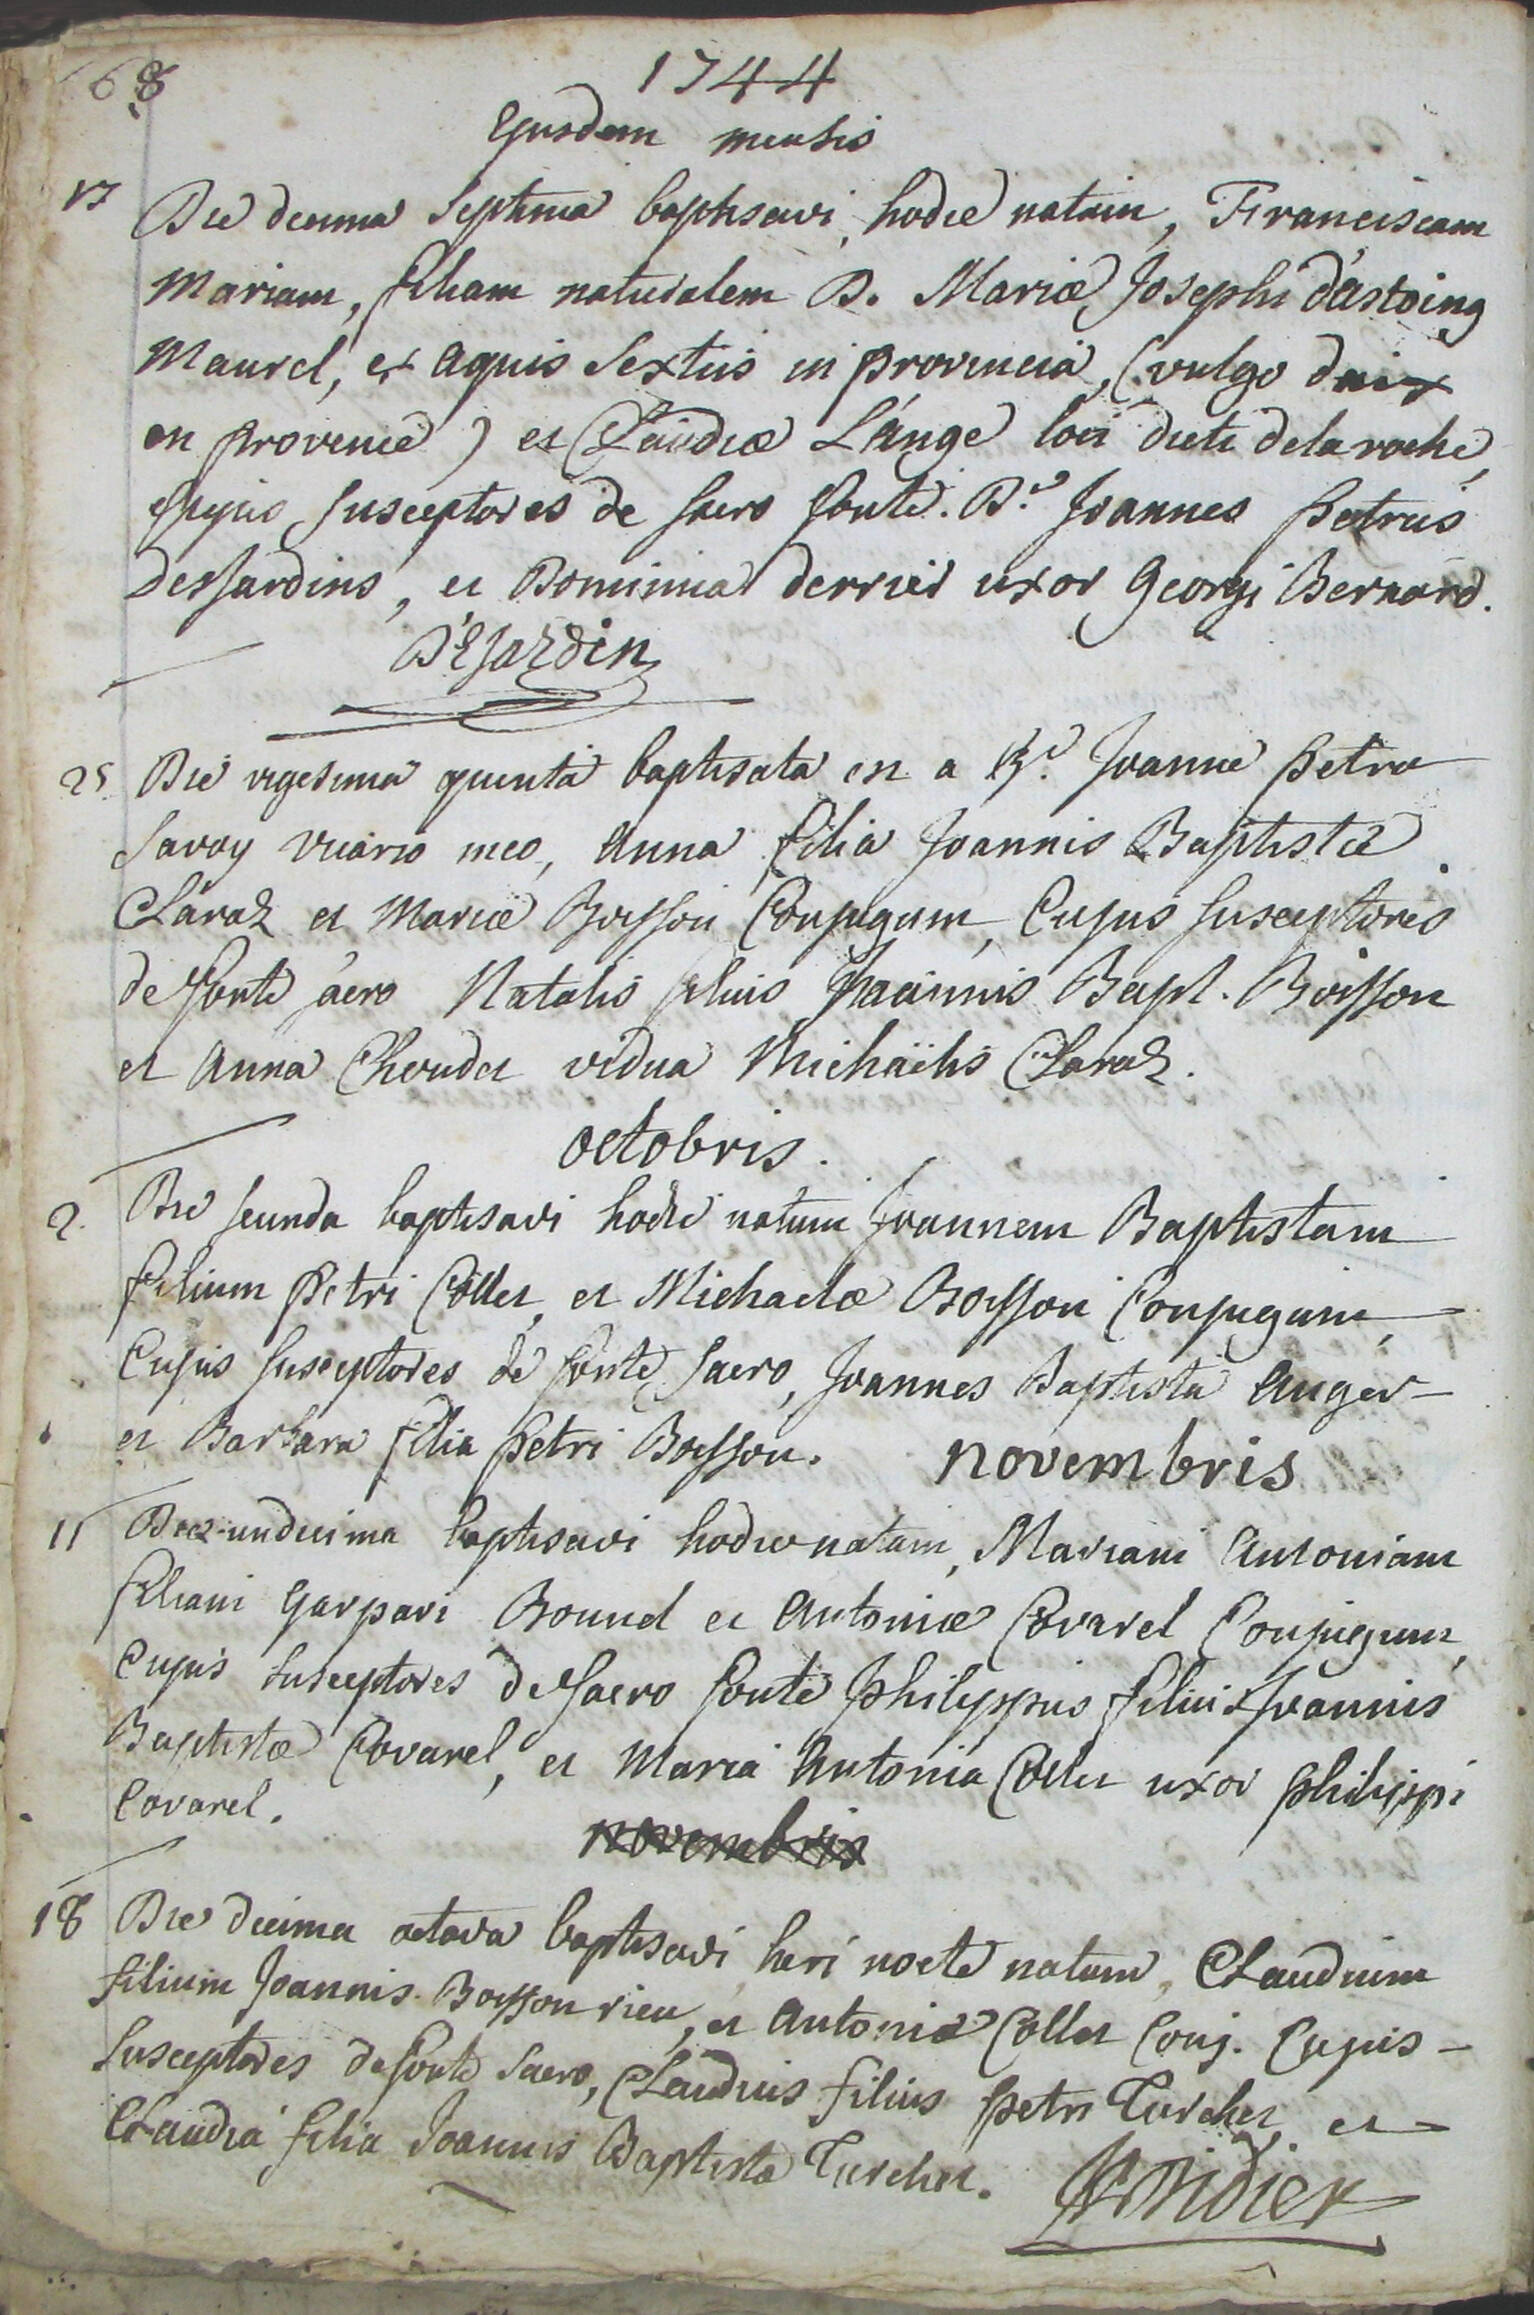 168
1744
Ejusdem mensis
17 Die decima septima baptisavi, hodie natam, Franciscam
Mariam, filiam naturalem D. Mariæ Josephi d'astoing
Maurel, ex aquis Sextiis in provincia, (vulgo daix
en provence) et Claudiæ L'ange loci dicti delaroche,
cujus susceptores de sacro fonte. D.s Joannes petrus
desjardins, et Dominica derrier uxor Georgi Bernard.
DEsjaRdin
25 Die vigesima quinta baptisata est a R.d Joanne petro
Savoy vicario meo, Anna filia Joannis Baptistæ
Claraz et Mariæ Boisson Conjugum, Cujus susceptores
de fonte sacro Natalis filius Joannis Bapt. Boisson
et Anna Choudet vidua Michaëlis Claraz.
octobris.
2. Die secunda baptisavi hodie natum Joannem Baptistam
filium petri Collet, et Michaelæ Boisson Conjugum,
Cujus susceptores de fonte sacro, Joannes Baptista Anger
et Barbara filia petri Boisson. novembris
11 Die undecima baptisavi hodie natam, Mariam Antoniam
filiam Gaspari Bounel et Antoniæ Covarel Conjugum,
Cujus susceptores de sacro fonte philippus filius Joannis
Baptistæ Covarel, et Maria Antonia Collet uxor philippi
Covarel.
novembris
18 Die decima octava baptisavi heri nocte natum, Claudium
filium Joannis Boisson rieu, et Antoniæ Collet Conj. Cujus
susceptores de fonte sacro, Claudius filius petri Turcher et
Claudia filia Joannis Baptistæ Turcher.